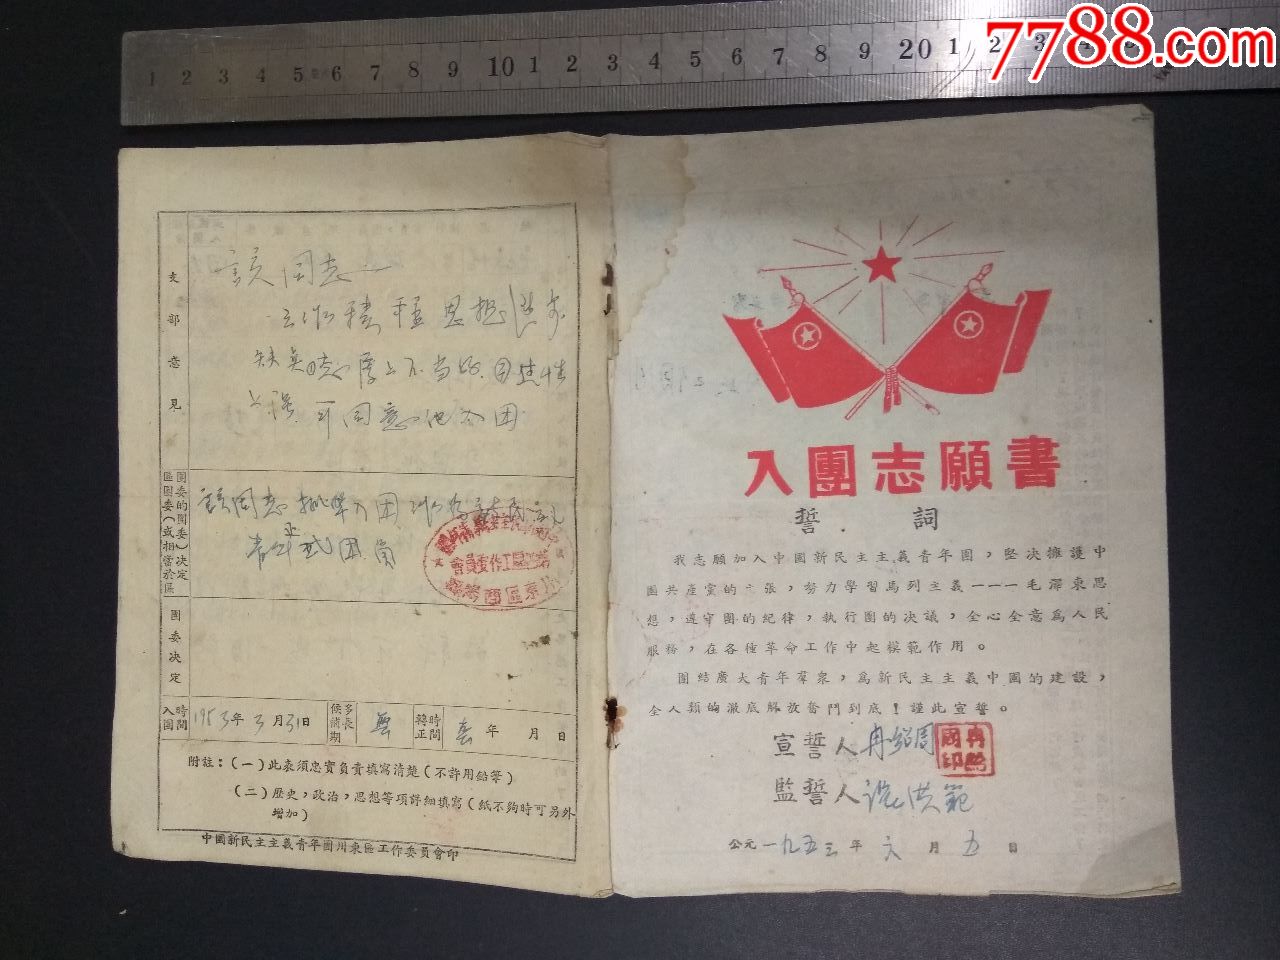 1 2 3 4 5 6 7 8 9 10 1 2 3 4 5 6 7 8 9 20 1 2 3
7788.com
支部意見
該同志
工作積極 思想進步
可同意他入团
區團委(或相當於區
團委的團委)決定
該同志批準入团
青年
团員
團委決定
入團時間
1953年3月31日
候補期長
無
轉正時間
年 月 日
附註:(一)此表須忠實負責填寫清楚(不許用鉛筆)
(二)歷史,政治,思想等項詳細填寫(紙不夠時可另外
增加)
中國新民主主義青年團川東區工作委員會印
入團志願書
誓 詞
我志願加入中國新民主主義青年團,堅决擁護中
國共產黨的主張,努力學習馬列主義———毛澤東思
想,遵守團的紀律,執行團的决議,全心全意為人民
服務,在各種革命工作中起模範作用。
團結廣大青年羣衆,為新民主主義中國的建設,
全人類的澈底解放奮鬥到底!謹此宣誓。
宣誓人 冉紹周
監誓人 洪範
公元一九五三年六月五日